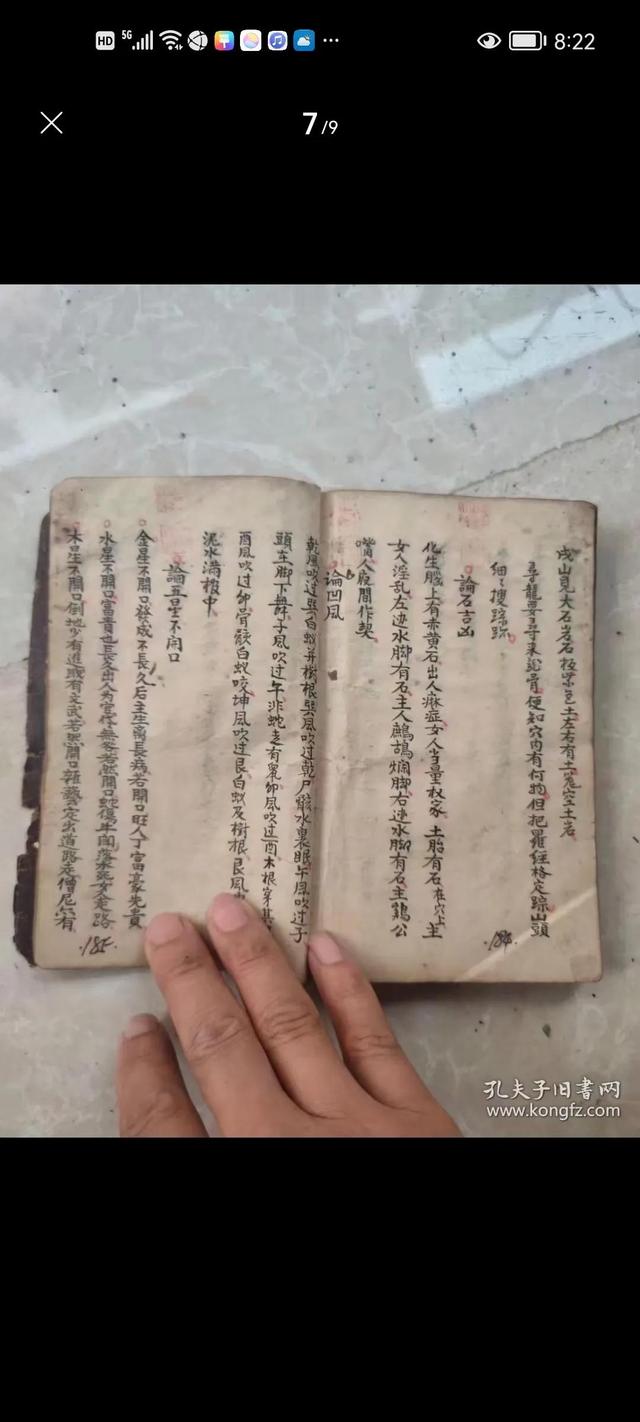 HD 5G 8:22
7/9
戌山見大石岩石极黑色土左右有土鬼空土岩
尋龍要尋來說骨便知穴內有何物但把羅经格定踪山頭
細々搜踪跡
論石吉凶
化生腦上有赤黄石出人痳症女人当量权家土胎有石在穴上主
女人淫乱左边水脚有石主人鷓鴣爛脚右边水脚有石主鷄公
嘴人夜間作契
論凹風
乾風吹过巽白蚁并樹根巽風吹过乾尸骸水裏眠午風吹过子
頭在脚下舞子風吹过午非蛇走有鼠卯風吹过酉木根穿其
酉風吹过卯骨骸白蚁咬坤風吹过艮白蚁及樹根艮風
泥水満棺中
論五星不開口
金星不開口發成不長久后主生离長病若開口旺人丁富豪先貴
水星不開口富貴也長久出人为官作無冬若然開口蛇傷牛闘落水死女走路
木星不開口倒地少有進或有文武若然開口雜藝定出道路走僧尼六有
184
185
孔夫子旧書网
www.kongfz.com